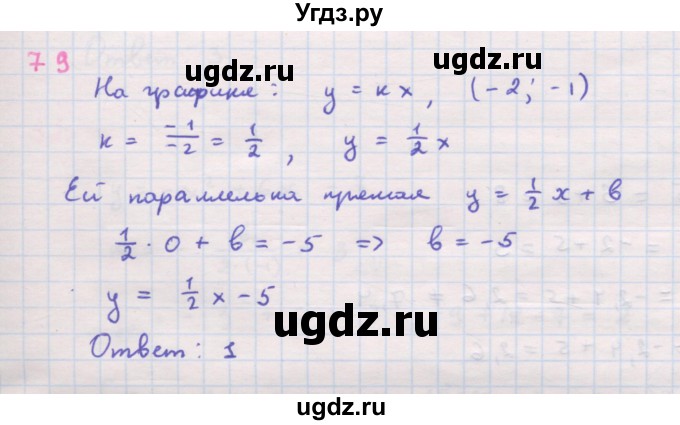 Угдз.ру
79
На графике: y = kx, (-2; -1)
k = -1/-2 = 1/2, y = 1/2 x
Ей параллельна прямая y = 1/2 x + b
1/2 · 0 + b = -5 => b = -5
y = 1/2 x - 5
Ответ: 1
ugdz.ru
ugdz.ru
ugdz.ru
ugdz.ru
ugdz.ru
ugdz.ru